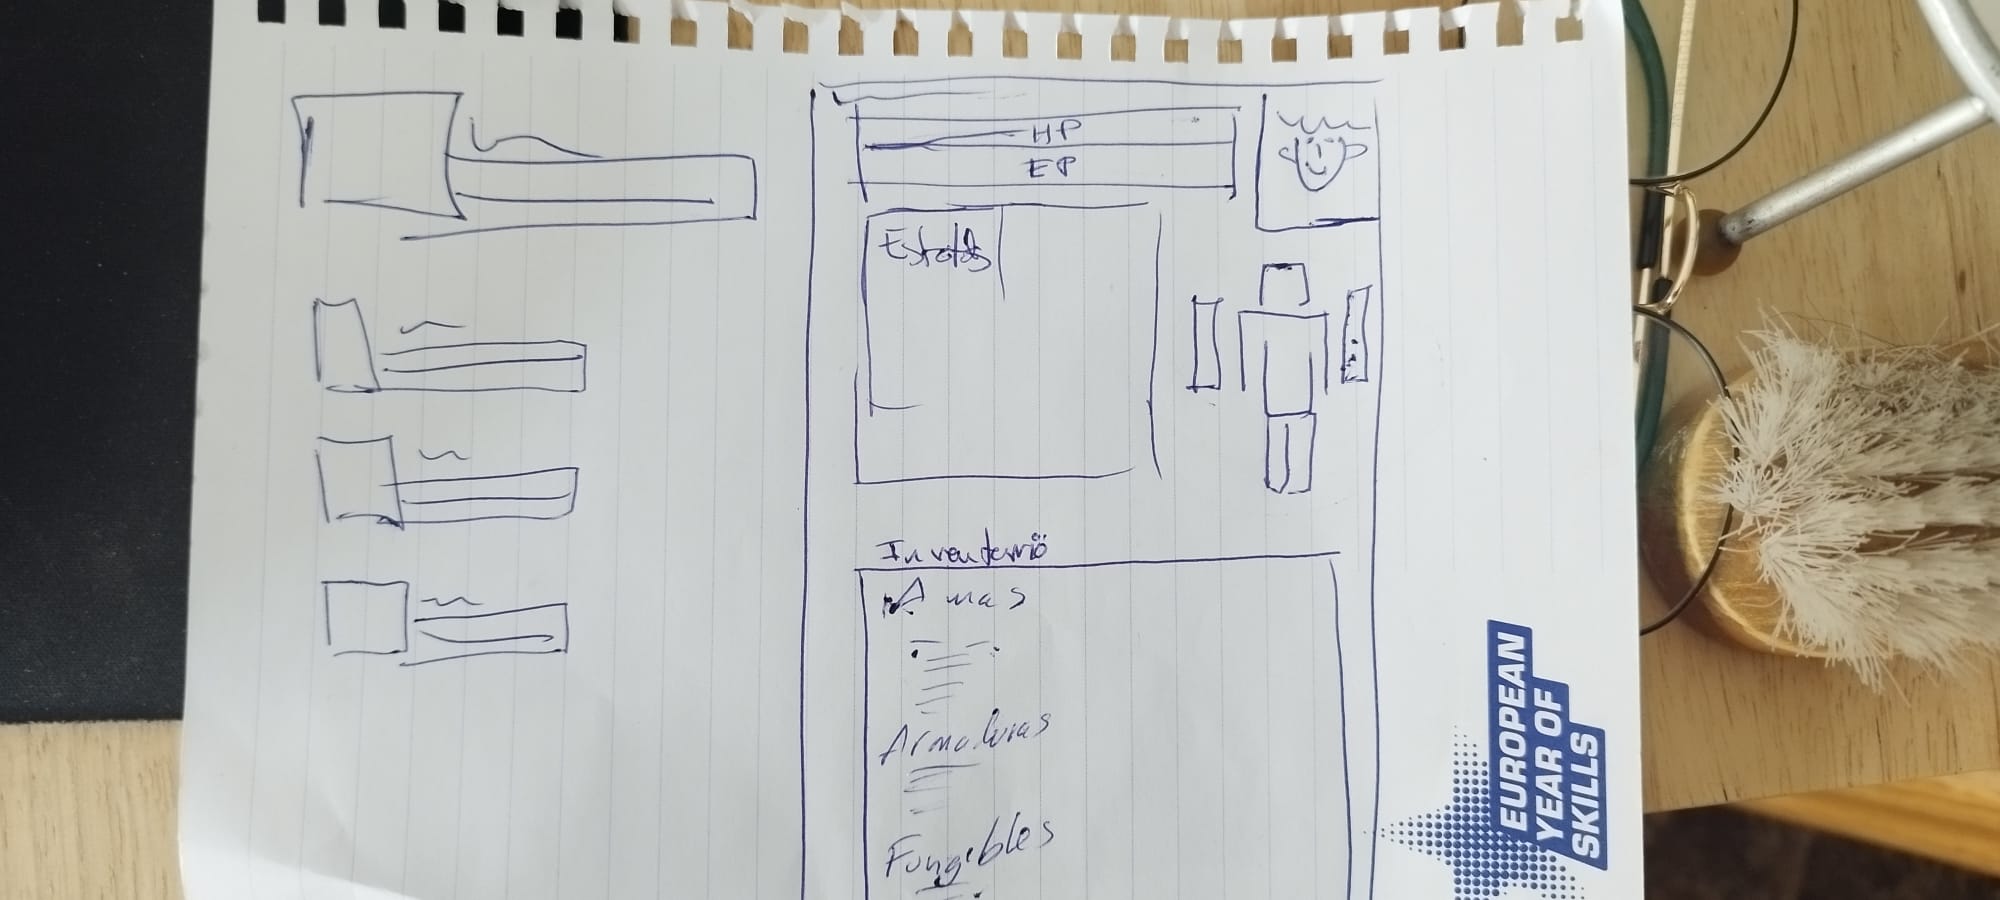 HP
EP
Estados
Inventario
Armas
Armaduras
Fungibles
EUROPEAN
YEAR OF
SKILLS